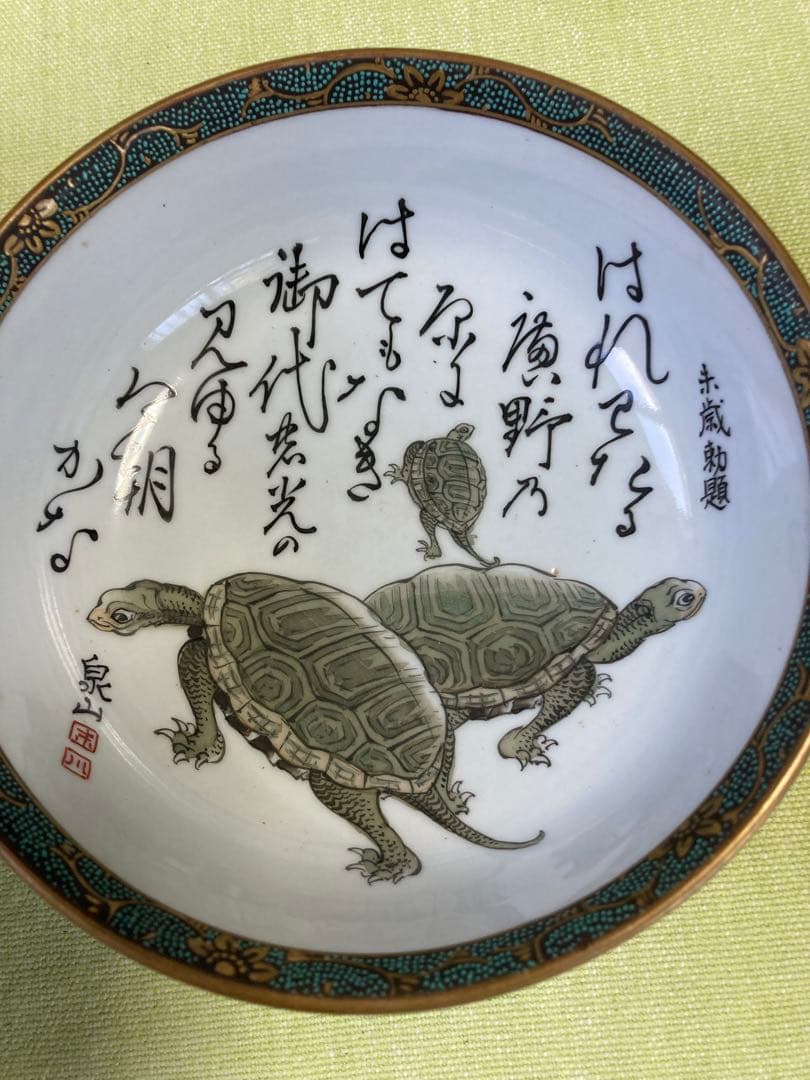 未歳勅題
はれわたる
廣野乃
原に
はてもなき
御代の光の
見ゆる
今朝
かな
泉山